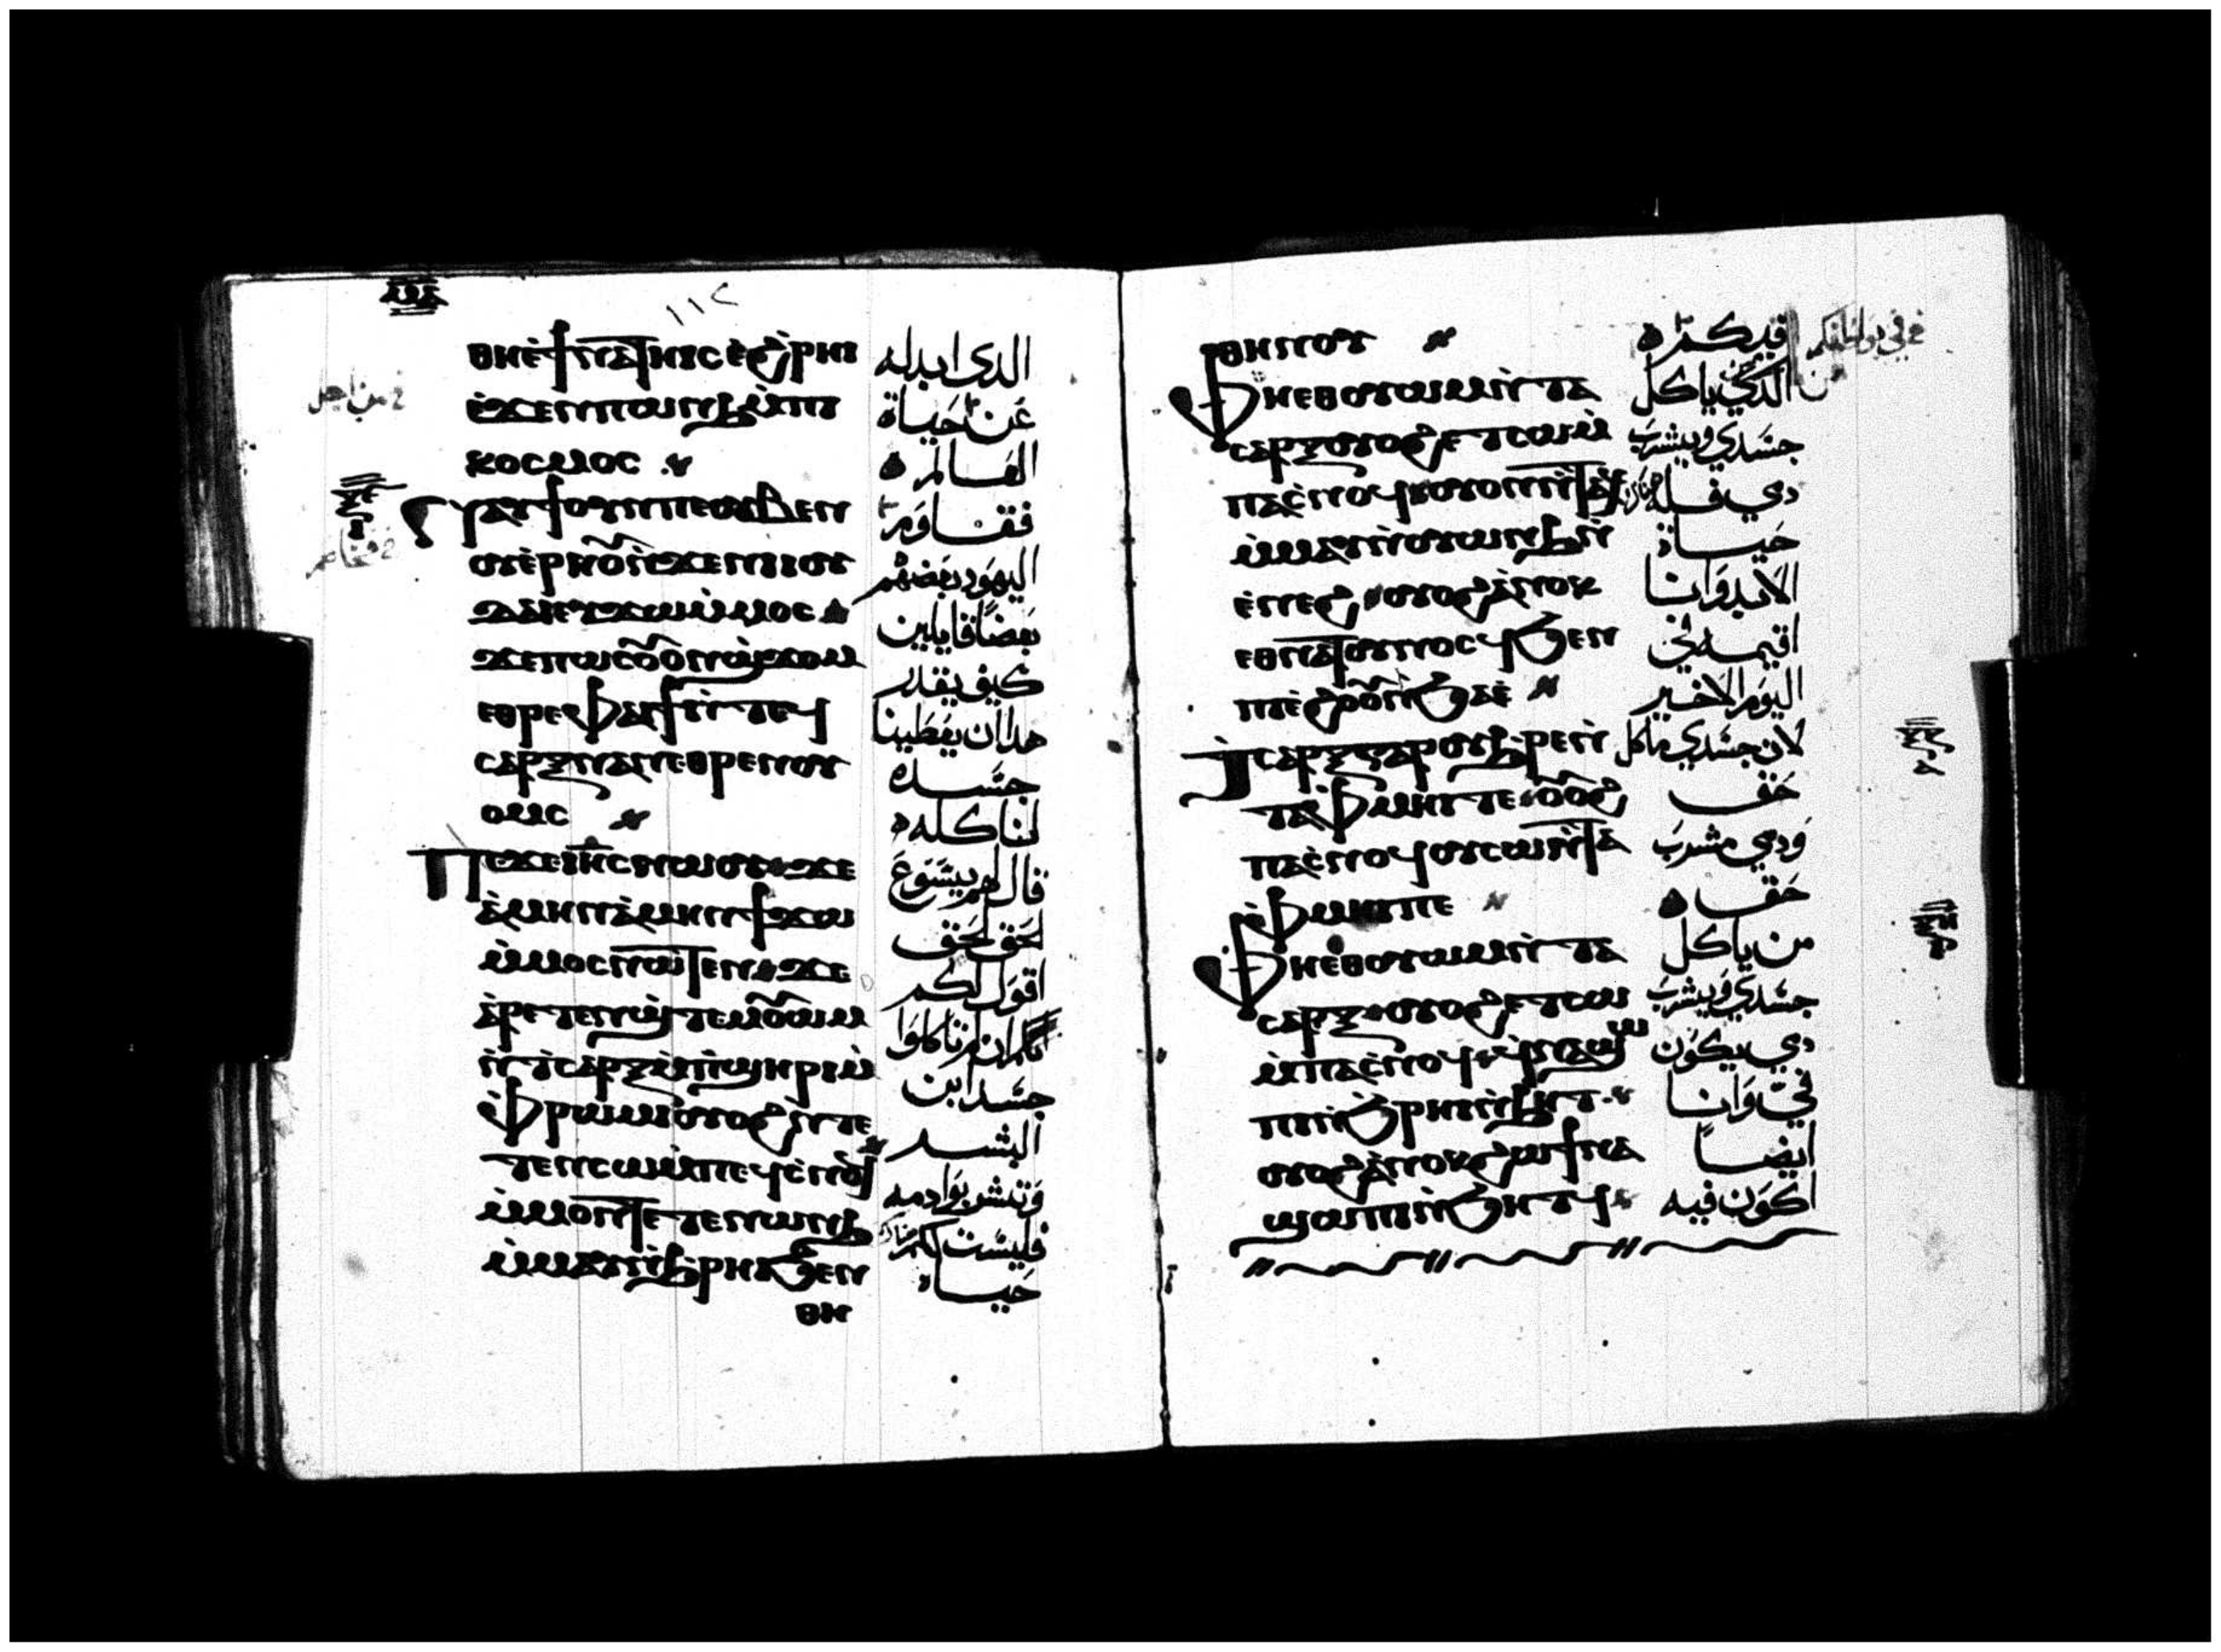 ⲙⲙⲁ
١١٢
ⲑⲏⲉ̀ϯⲛⲁⲧⲏⲓⲥⲉ̀ϩ̀ⲣⲏⲓ
ⲉ̀ϫⲉⲛⲡⲱⲛϧⲙ̀ⲡⲓ
ⲕⲟⲥⲙⲟⲥ
ⲛⲁⲩϯⲟⲩⲛⲡⲉⲟⲩⲃⲉⲛ
ⲟⲩⲉ̀ⲣⲏⲟⲩⲛ̀ϫⲉⲛⲓⲓⲟⲩ
ⲇⲁⲓⲉⲩϫⲱⲙ̀ⲙⲟⲥ
ϫⲉⲡⲱⲥⲟⲩⲟⲛϣ̀ϫⲟⲙ
ⲉⲑⲣⲉⲫⲁⲓϯⲛ̀ⲧⲉϥ
ⲥⲁⲣⲝⲛⲁⲛⲉⲑⲣⲉⲛⲟⲩ
ⲟⲙⲥ
ⲡⲉϫⲉⲓⲏⲥⲛⲱⲟⲩϫⲉ
ⲁ̀ⲙⲏⲛⲁ̀ⲙⲏⲛϯϫⲱ
ⲙ̀ⲙⲟⲥⲛⲱⲧⲉⲛϫⲉ
ⲁ̀ⲣⲉⲧⲉⲛϣ̀ⲧⲉⲙⲟⲩⲱⲙ
ⲛ̀ⲧ̀ⲥⲁⲣⲝⲙ̀ⲡ̀ϣⲏⲣⲓⲙ̀
ⲫ̀ⲣⲱⲙⲓⲟⲩⲟϩⲛ̀ⲧⲉ
ⲧⲉⲛⲥⲱⲙ̀ⲡⲉϥⲥ̀ⲛⲟϥ
ⲙ̀ⲙⲟⲛⲧⲉⲧⲉⲛⲱⲛϧ
ⲙ̀ⲙⲁⲩⲛ̀ϧ̀ⲣⲏⲓϧⲉⲛ
ⲑⲏ
الدى ابدله
عن حياة
العالم
فقاوم
اليهود بعضهم
بعضا قايلين
كيف يقدر
هذا ان يعطينا
جسده
لنا كله
قال لهم يسوع
الحق الحق
اقول لكم
ان لم تاكلوا
جسد ابن
البشر
وتشربوا دمه
فليست لكم
حياه
من اجل
ⲑⲏⲛⲟⲩ
ⲫⲏⲉⲑⲟⲩⲱⲙⲛ̀ⲧⲁ
ⲥⲁⲣⲝⲟⲩⲟϩⲉⲧⲥⲱⲙ̀
ⲡⲁⲥ̀ⲛⲟϥⲟⲩⲟⲛⲧⲁϥ
ⲙ̀ⲙⲁⲩⲛ̀ⲟⲩⲱⲛϧⲛ̀
ⲉ̀ⲛⲉϩⲟⲩⲟϩⲁ̀ⲛⲟⲕ
ⲉⲑⲛⲁⲧⲟⲩⲛⲟⲥϥϧⲉⲛ
ⲡⲓⲉ̀ϩⲟⲟⲩⲛ̀ϧⲁⲉ̀
ⲧ̀ⲥⲁⲣⲝⲅⲁⲣⲟⲩϧ̀ⲣⲉⲛ̀
ⲧⲁⲫ̀ⲙⲏⲓⲧⲉⲟⲩⲟϩ
ⲡⲁⲥ̀ⲛⲟϥⲟⲩⲥⲱⲛ̀ⲧⲁ
ⲫ̀ⲙⲏⲓⲡⲉ
ⲫⲏⲉⲑⲟⲩⲱⲙⲛ̀ⲧⲁ
ⲥⲁⲣⲝⲟⲩⲟϩⲉⲧⲥⲱ
ⲙ̀ⲡⲁⲥ̀ⲛⲟϥⲉϥⲛⲁϣⲱ
ⲡⲓⲛ̀ϧ̀ⲣⲏⲓⲛ̀ϧⲏⲧ
ⲟⲩⲟϩⲁ̀ⲛⲟⲕϩⲱϯⲛⲁ
ϣⲱⲡⲓⲛ̀ϧⲏⲧϥ
فيكم
الذي ياكل
جسدي ويشرب
دمي فله
حياة
الابد وانا
اقيمه في
اليوم الاخير
لان جسدي ماكل
حق
ودمي مشرب
حق
من ياكل
جسدي ويشرب
دمي يكون
في وانا
ايضا
اكون فيه